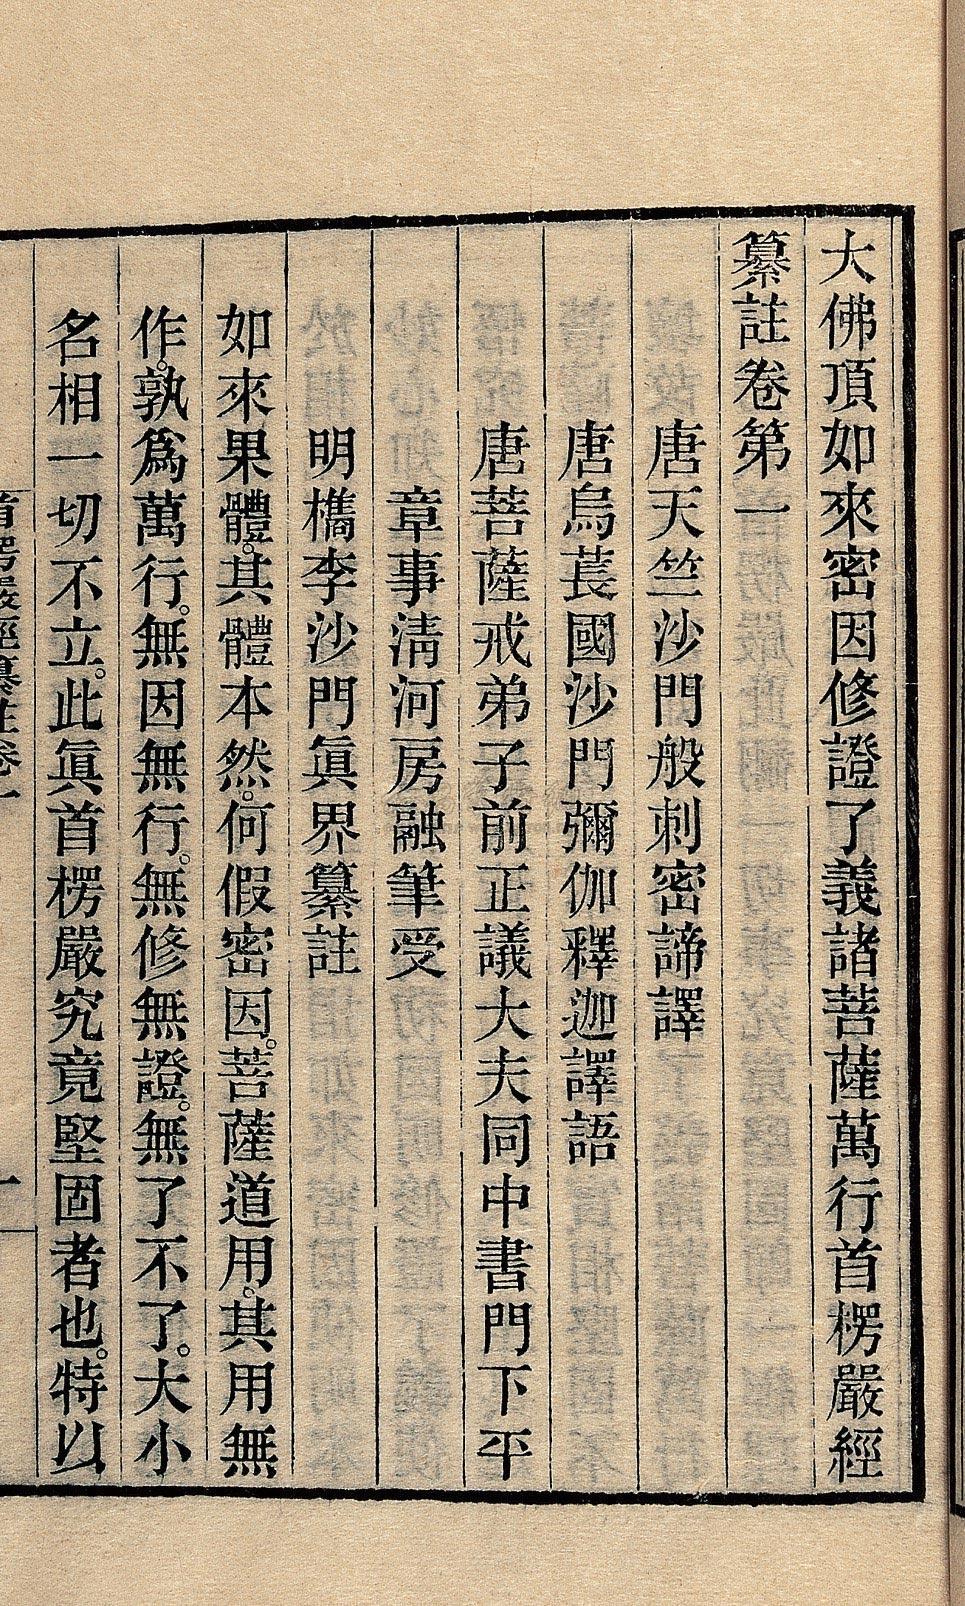 大佛頂如來密因修證了義諸菩薩萬行首楞嚴經
纂註卷第一
唐天竺沙門般剌密諦譯
唐烏萇國沙門彌伽釋迦譯語
唐菩薩戒弟子前正議大夫同中書門下平
章事淸河房融筆受
明檇李沙門眞界纂註
如來果體。其體本然。何假密因。菩薩道用。其用無
作。孰爲萬行。無因無行。無修無證。無了不了。大小
名相一切不立。此眞首楞嚴究竟堅固者也。特以
首楞嚴經纂註卷一 一